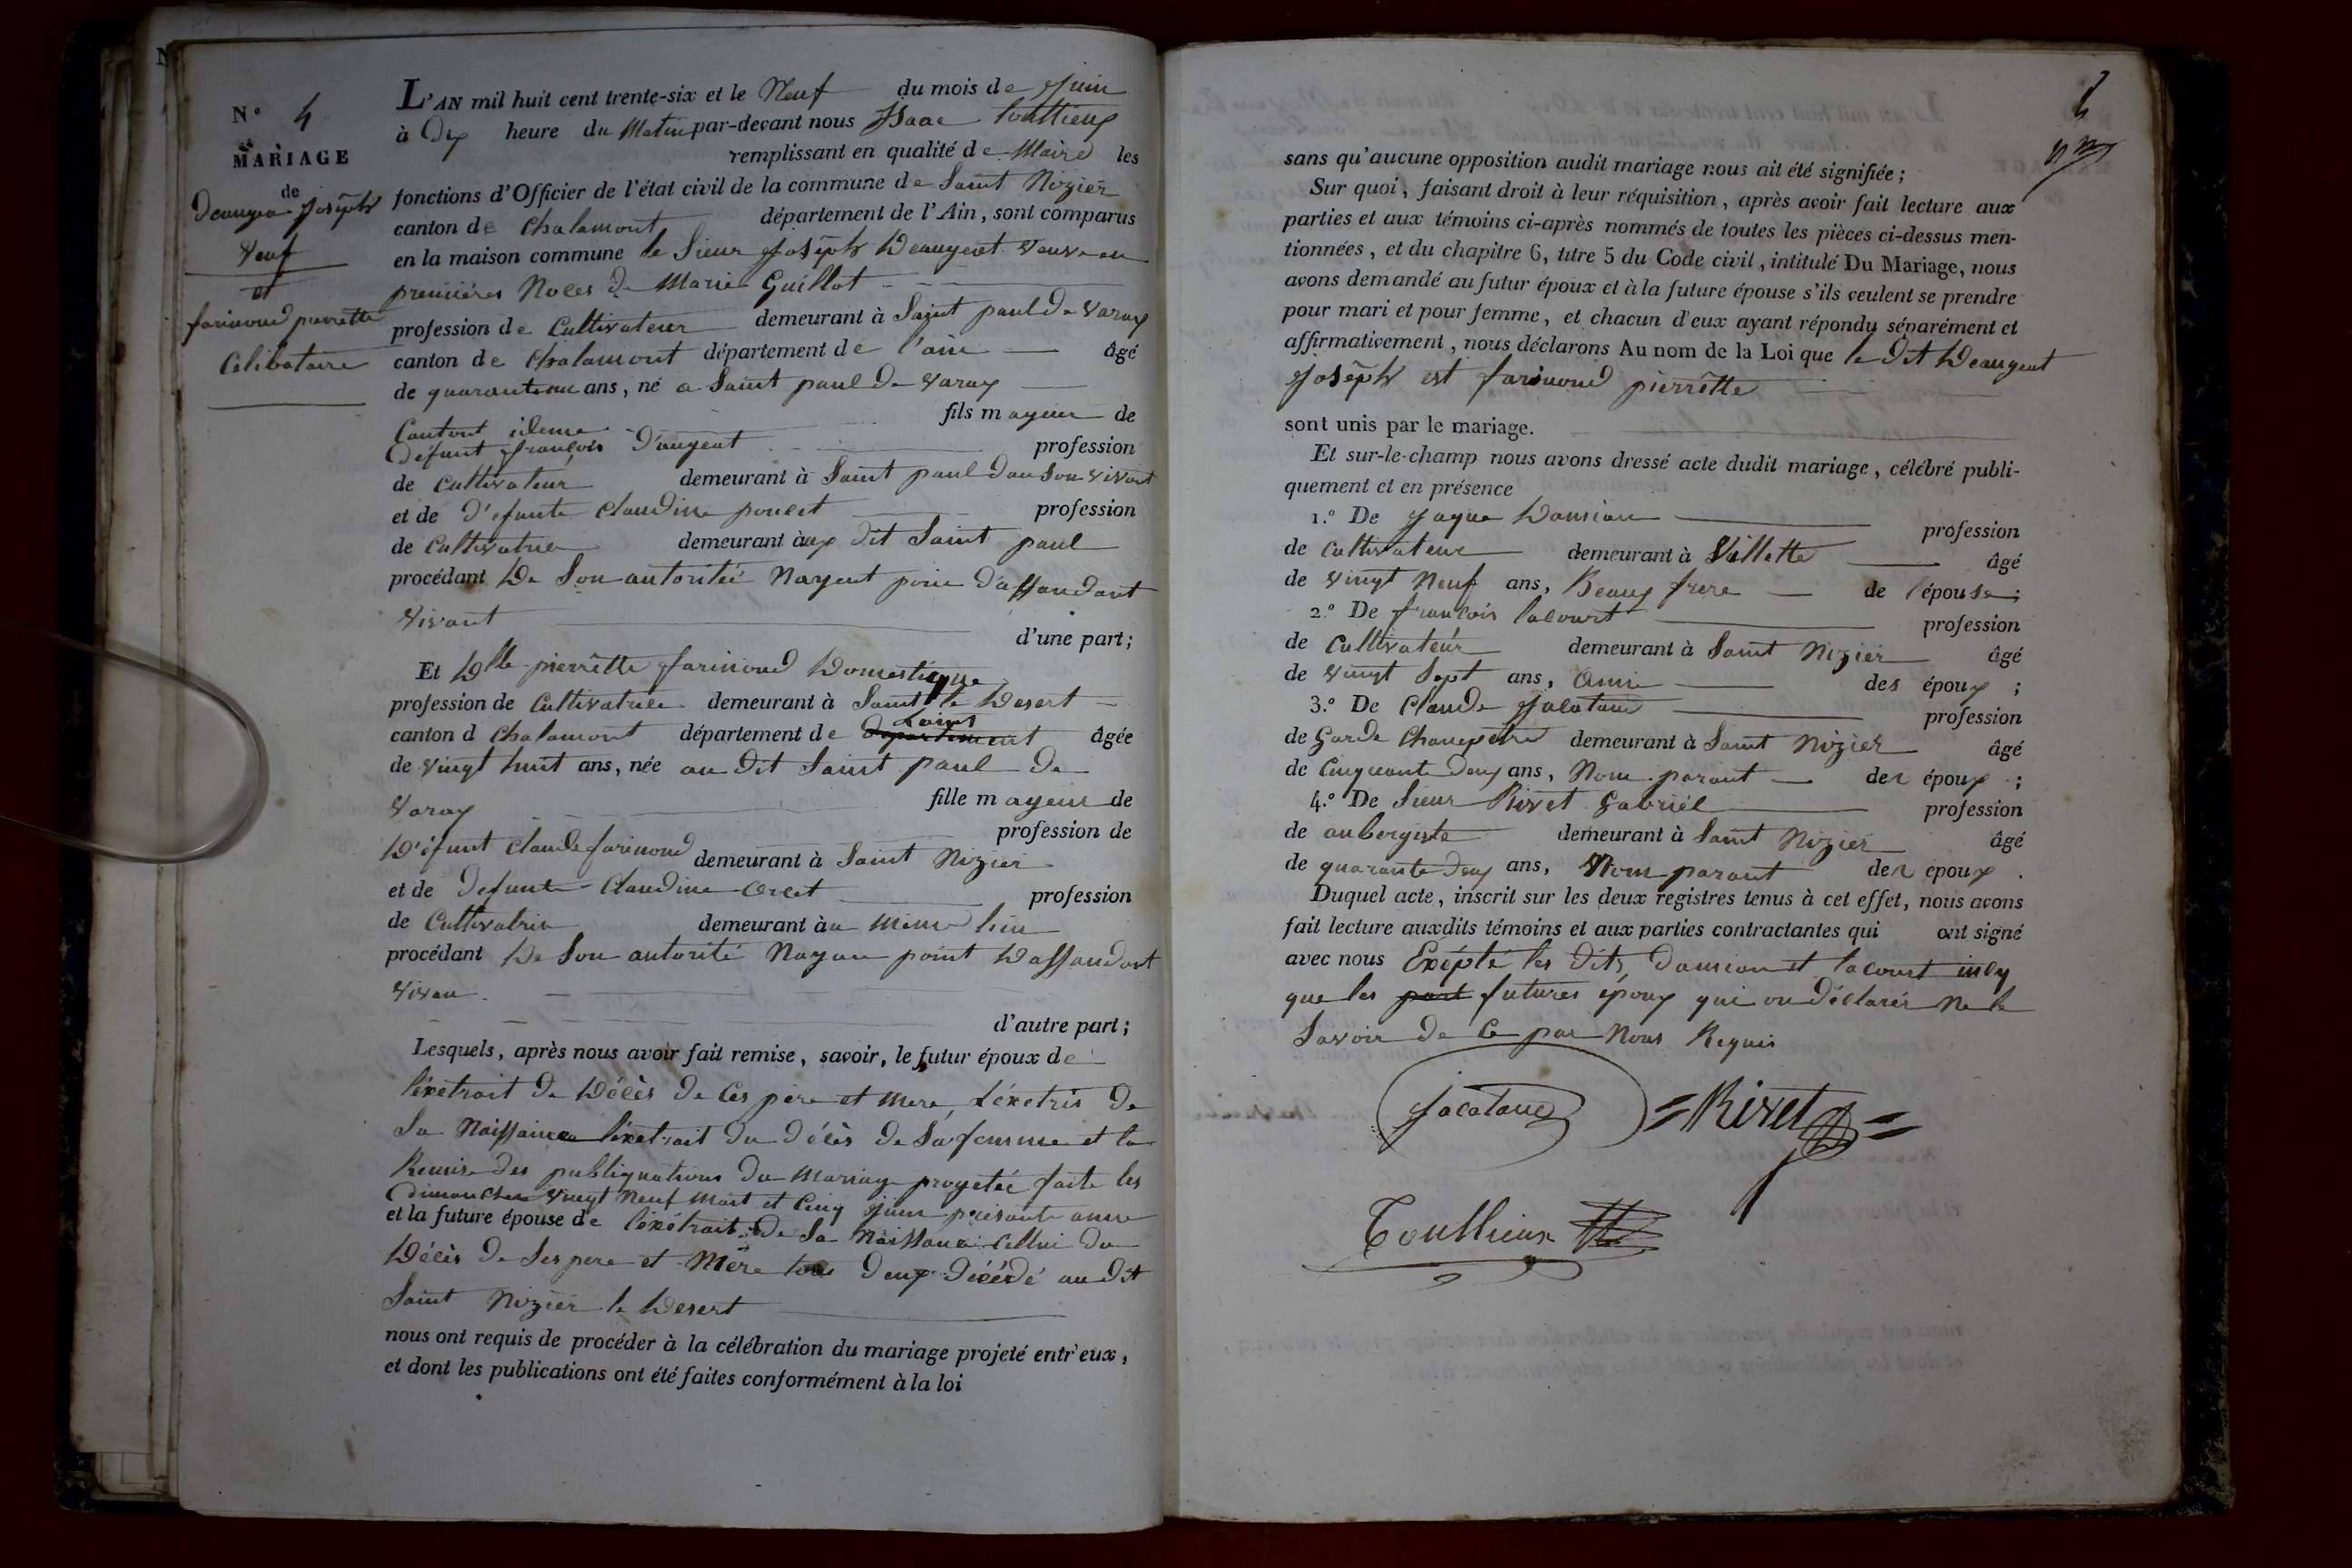 N° 4
MARIAGE
de
Deaugeat Joseph
Veuf
et
farinoud pierrette
Célibataire
L'AN mil huit cent trente-six et le Neuf du mois de Juin
à Dix heure du Matin par-devant nous Isaac touttieux
remplissant en qualité de Maire les
fonctions d'Officier de l'état civil de la commune de Saint Nizier
canton de Chalamont département de l'Ain, sont comparus
en la maison commune le Sieur Joseph Deaugeat Veuve en
premières Noces De Marie Guillot
profession de Cultivateur demeurant à Saint paul De Varax
canton de Chalamont département de l'ain âgé
de quarante un ans, né a Saint paul De Varax
Cantont ideme fils mayeur de
Défunt françois D'augeat profession
de Cultivateur demeurant à Saint paul Dan Son vivant
et de D'efunte Claudine poncet profession
de Cultivatrice demeurant aux dit Saint paul
procédant De Son autoritée Nayent poin D'assandant
Vivant
d'une part;
Et Dlle pierrette farinoud Domestique
profession de Cultivatrice demeurant à Saint le Desert
canton d Chalamont département de Departement Lains âgée
de vingt huit ans, née au Dit Saint paul De
Varax fille mayeur de
D'éfunt Claude farinoud profession de
demeurant à Saint Nizier
et de Defunte Claudine Orcet profession
de Cultivatrice demeurant au même lieu
procédant De Son autorité Nayan point Dassandant
Vivan
d'autre part;
Lesquels, après nous avoir fait remise, savoir, le futur époux de
l'éxetrait De Décès De Ces père et mere, L'éxetris De
Sa Naissance l'éxetrait Du Décès De Sa femme et la
Remise Des publiquations Du Mariag progetée faite les
Dimanches Vingt Neuf Mait et Cinq Juin prisante anne
et la future épouse de l'éxétrait De Sa Naissance Cellui Du
Décès De Ses pere et Mère tous Deux Décédé au Dit
Saint Nizier le Desert
nous ont requis de procéder à la célébration du mariage projeté entr'eux,
et dont les publications ont été faites conformément à la loi
sans qu'aucune opposition audit mariage nous ait été signifiée;
Sur quoi, faisant droit à leur réquisition, après avoir fait lecture aux
parties et aux témoins ci-après nommés de toutes les pièces ci-dessus men-
tionnées, et du chapitre 6, titre 5 du Code civil, intitulé Du Mariage, nous
avons demandé au futur époux et à la future épouse s'ils veulent se prendre
pour mari et pour femme, et chacun d'eux ayant répondu séparément et
affirmativement, nous déclarons Au nom de la Loi que le Dit Deaugeat
Joseph est farinoud pierrette
sont unis par le mariage.
Et sur-le-champ nous avons dressé acte dudit mariage, célébré publi-
quement et en présence
1.° De Jaque Damian profession
de Cultivateur demeurant à Villette âgé
de Vingt Neuf ans, Beaux frere de l'épouse;
2.° De françois lacourt profession
de Cultivateur demeurant à Saint Nizier âgé
de Vingt Sept ans, Amie des époux;
3.° De Claude Jacotaud profession
de Garde Champêtre demeurant à Saint Nizier âgé
de Cinquante Deux ans, Nom parant des époux;
4.° De Sieur Rivet Gabriél profession
de aubergiste demeurant à Saint Nizier âgé
de quarante Deux ans, Nom parant des époux.
Duquel acte, inscrit sur les deux registres tenus à cet effet, nous avons
fait lecture auxdits témoins et aux parties contractantes qui ont signé
avec nous Exépté les Dits, Damian et lacourt insy
que les part futures époux qui on Déclarés Ne le
Savoir De Ce par Nous Requis
Jacotaud
=Rivet=
Toullieux